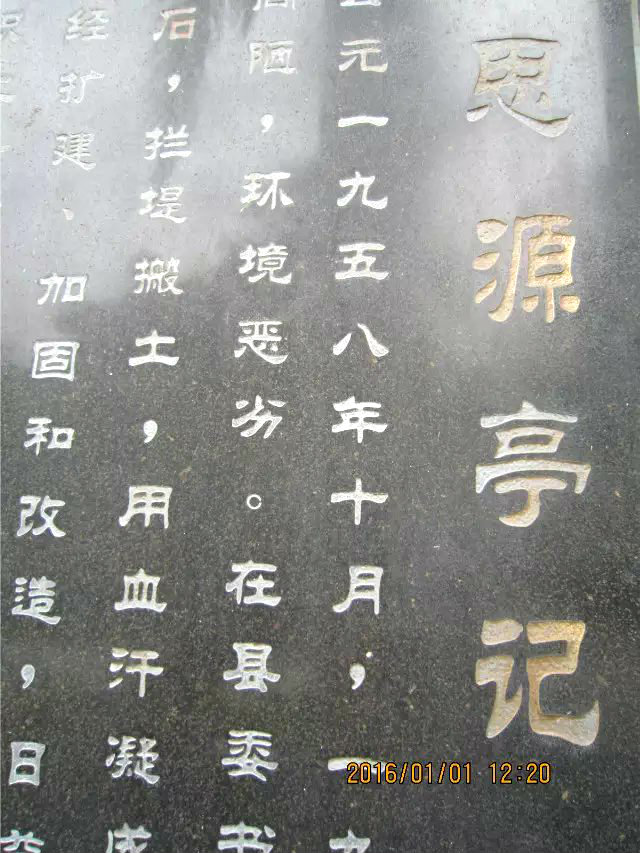 思源亭记
元一九五八年十月，一九
陋，环境恶劣。在县委书
石，拦堤搬土，用血汗凝成
经扩建、加固和改造，日
2016/01/01 12:20